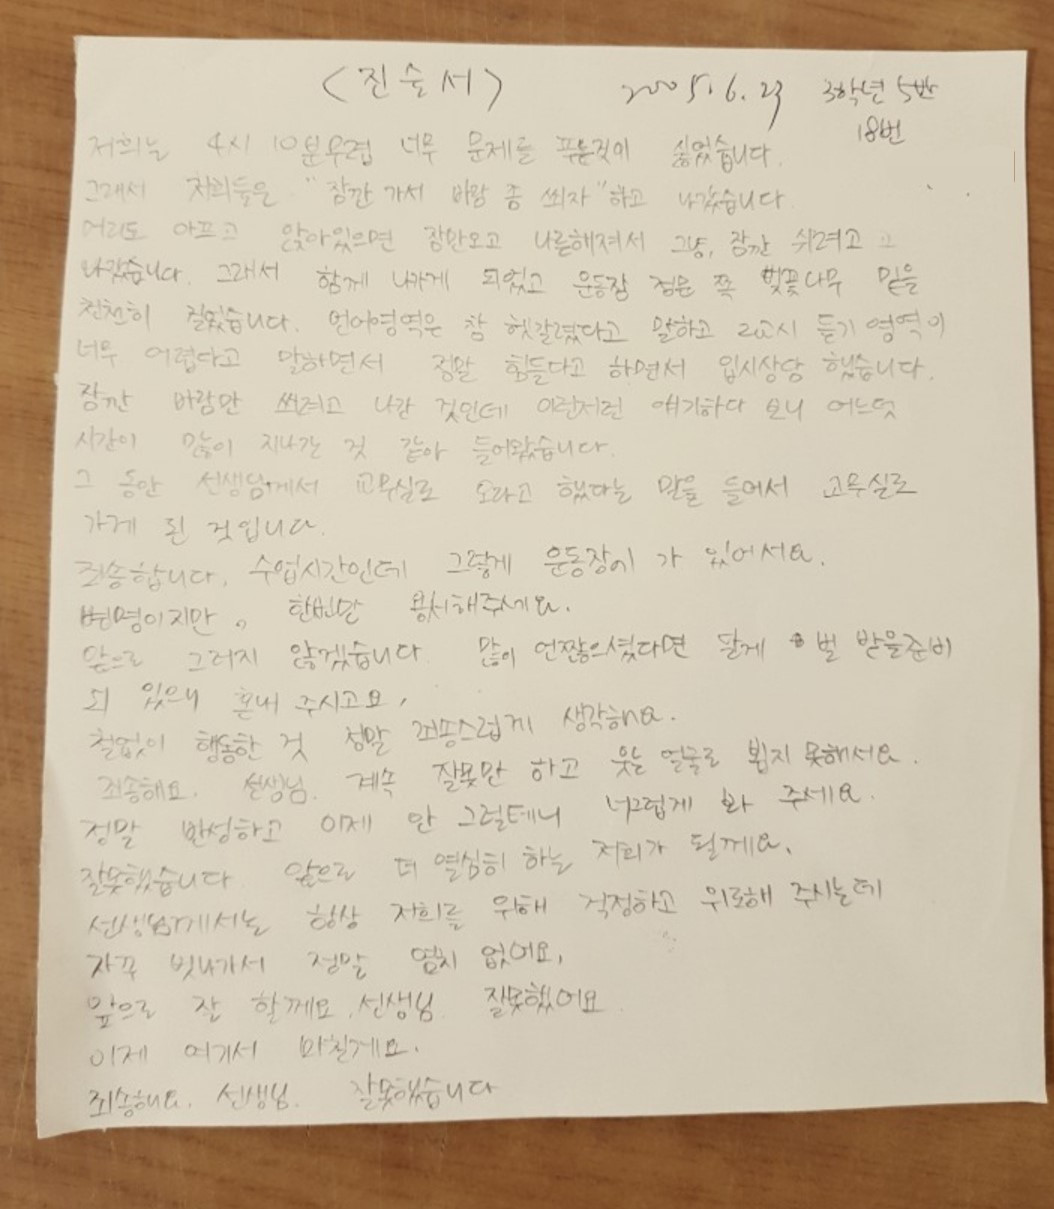 <진술서> 2005. 6. 23 3학년 5반
18번
저희는 4시 10분무렵 너무 문제를 푸는것이 싫었습니다.
그래서 저희들은 "잠깐 가서 바람 좀 쐬자"하고 나갔습니다.
머리도 아프고 앉아있으면 잠만오고 나른해져서 그냥, 잠깐 쉬려고 
나갔습니다. 그래서 함께 나가게 되었고 운동장 정문 쪽 벚꽃나무 밑을
천천히 걸었습니다. 언어영역은 참 헷갈렸다고 말하고 2교시 듣기 영역이
너무 어렵다고 말하면서 정말 힘들다고 하면서 입시상담 했습니다.
잠깐 바람만 쐬려고 나간 것인데 이런저런 얘기하다 보니 어느덧
시간이 많이 지나간 것 같아 들어왔습니다.
그 동안 선생님께서 교무실로 오라고 했다는 말을 들어서 교무실로
가게 된 것입니다.
죄송합니다. 수업시간인데 그렇게 운동장에 가 있어서요.
변명이지만, 한번만 용서해주세요.
앞으로 그러지 않겠습니다. 많이 언짢으셨다면 달게 벌 받을준비
되 있으니 혼내 주시고요,
철없이 행동한 것 정말 죄송스럽게 생각해요.
죄송해요. 선생님. 계속 잘못만 하고 웃는 얼굴로 뵙지 못해서요.
정말 반성하고 이제 안 그럴테니 너그럽게 봐 주세요.
잘못했습니다 앞으로 더 열심히 하는 저희가 될게요.
선생님께서는 항상 저희를 위해 걱정하고 위로해 주시는데
자꾸 빗나가서 정말 염치 없어요,
앞으로 잘 할께요. 선생님. 잘못했어요
이제 여기서 마칠게요.
죄송해요. 선생님. 잘못했습니다